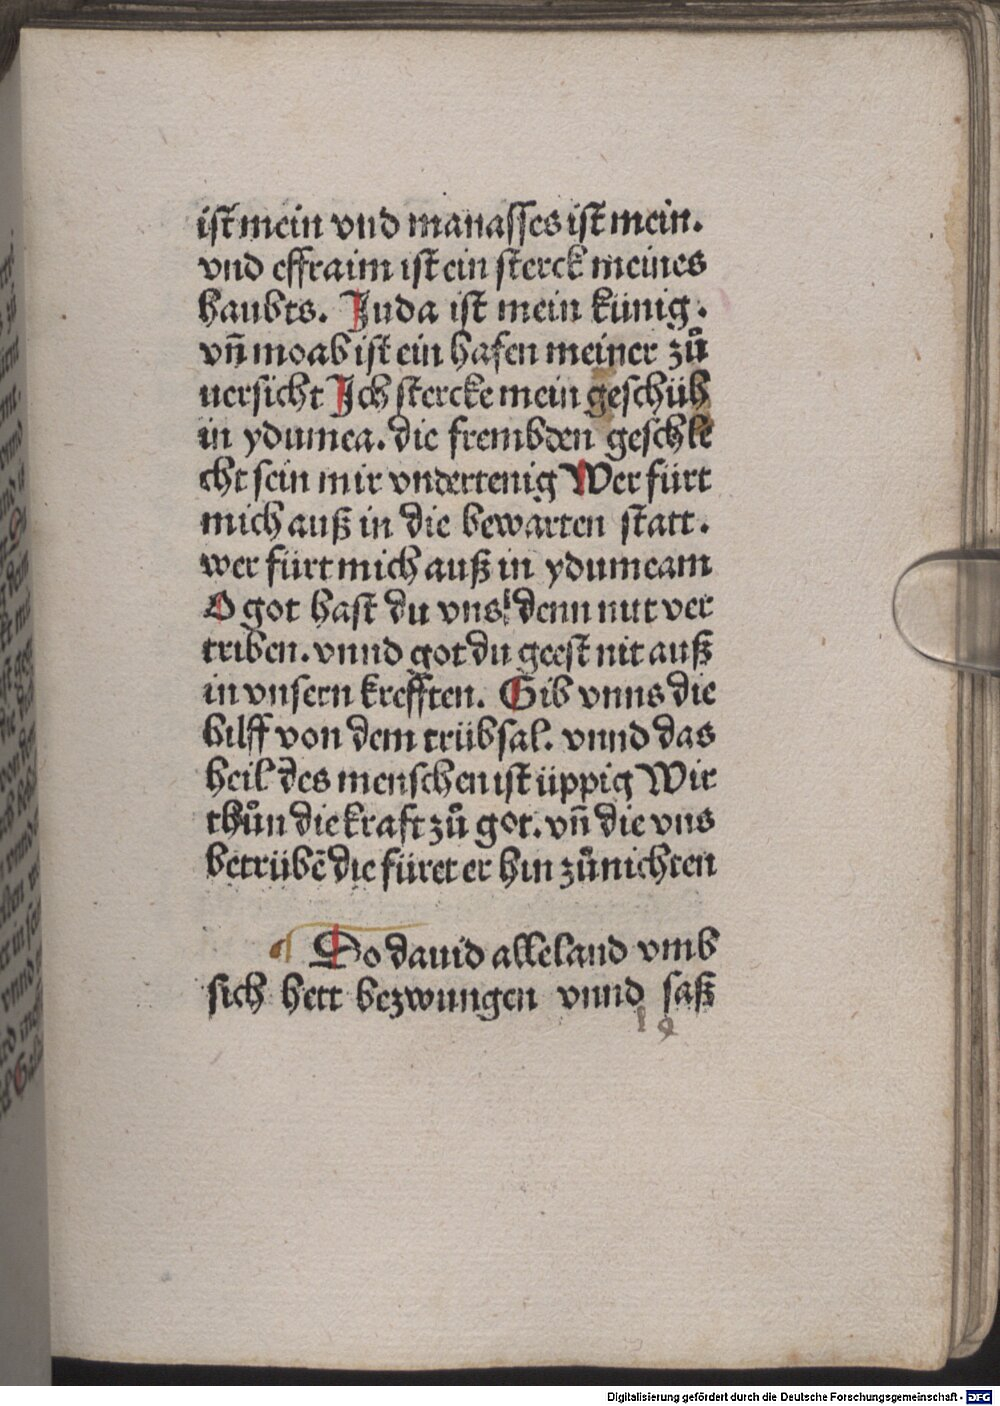 ist mein vnd manasses ist mein.
vnd effraim ist ein sterck meines
haubts. Juda ist mein künig.
vñ moab ist ein hafen meiner zů
uersicht Ich stercke mein geschüh
in ydumea. die frembden geschle
cht sein mir vndertenig Wer fürt
mich auß in die bewarten statt.
wer fürt mich auß in ydumeam
O got hast du vns denn nit ver
triben. vnnd got du geest nit auß
in vnsern krefften. Gib vnns die
hilff von dem trübsal. vnnd das
heil des menschen ist üppig Wir
thůn die kraft zů got. vñ die vns
betrübē die füret er hin zů nichten
So dauid alle land vmb
sich hett bezwungen vnnd saß
19
Digitalisierung gefördert durch die Deutsche Forschungsgemeinschaft - DFG